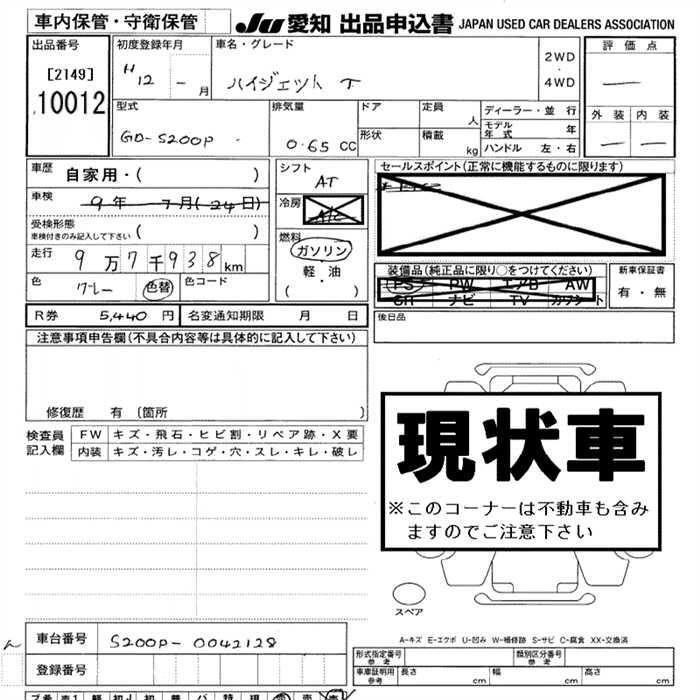 車内保管・守衛保管
JU 愛知 出品申込書 JAPAN USED CAR DEALERS ASSOCIATION
出品番号
[2149]
10012
初度登録年月
H 12 - 月
車名・グレード
ハイジェット T
2WD
・
4WD
評価点
—
外装 内装
— —
型式
GD-S200P
排気量
0.65 CC
ドア
形状
定員
人
積載
kg
ディーラー・並行
モデル年式 年
ハンドル 左・右
車歴 自家用・( )
車検 9年 7月(24日)
受検形態
車検付きのみ記入して下さい ( )
走行 9万7千938km
色 グレー 色替 色コード
シフト
AT
冷房
A/C
燃料
ガソリン
軽・油
( )
セールスポイント(正常に機能するものに限ります)
装備品(純正品に限り○をつけてください)
PS PW エアB AW
SR ナビ TV カワシート
新車保証書
有・無
R券 5,440円 名変通知期限 月 日
後日品
注意事項申告欄(不具合内容等は具体的に記入して下さい)
修復歴 有 〔箇所 〕
検査員記入欄
FW キズ・飛石・ヒビ割・リペア跡・X要
内装 キズ・汚レ・コゲ・穴・スレ・キレ・破レ
現状車
※このコーナーは不動車も含み
ますのでご注意下さい
スペア
A-キズ E-エクボ U-凹み W-補修跡 S-サビ C-腐食 XX-交換済
車台番号 S200P-0042128
登録番号
形式指定番号
参考
類別区分番号
参考
車庫証明用
参考
長さ cm 幅 cm 高さ cm